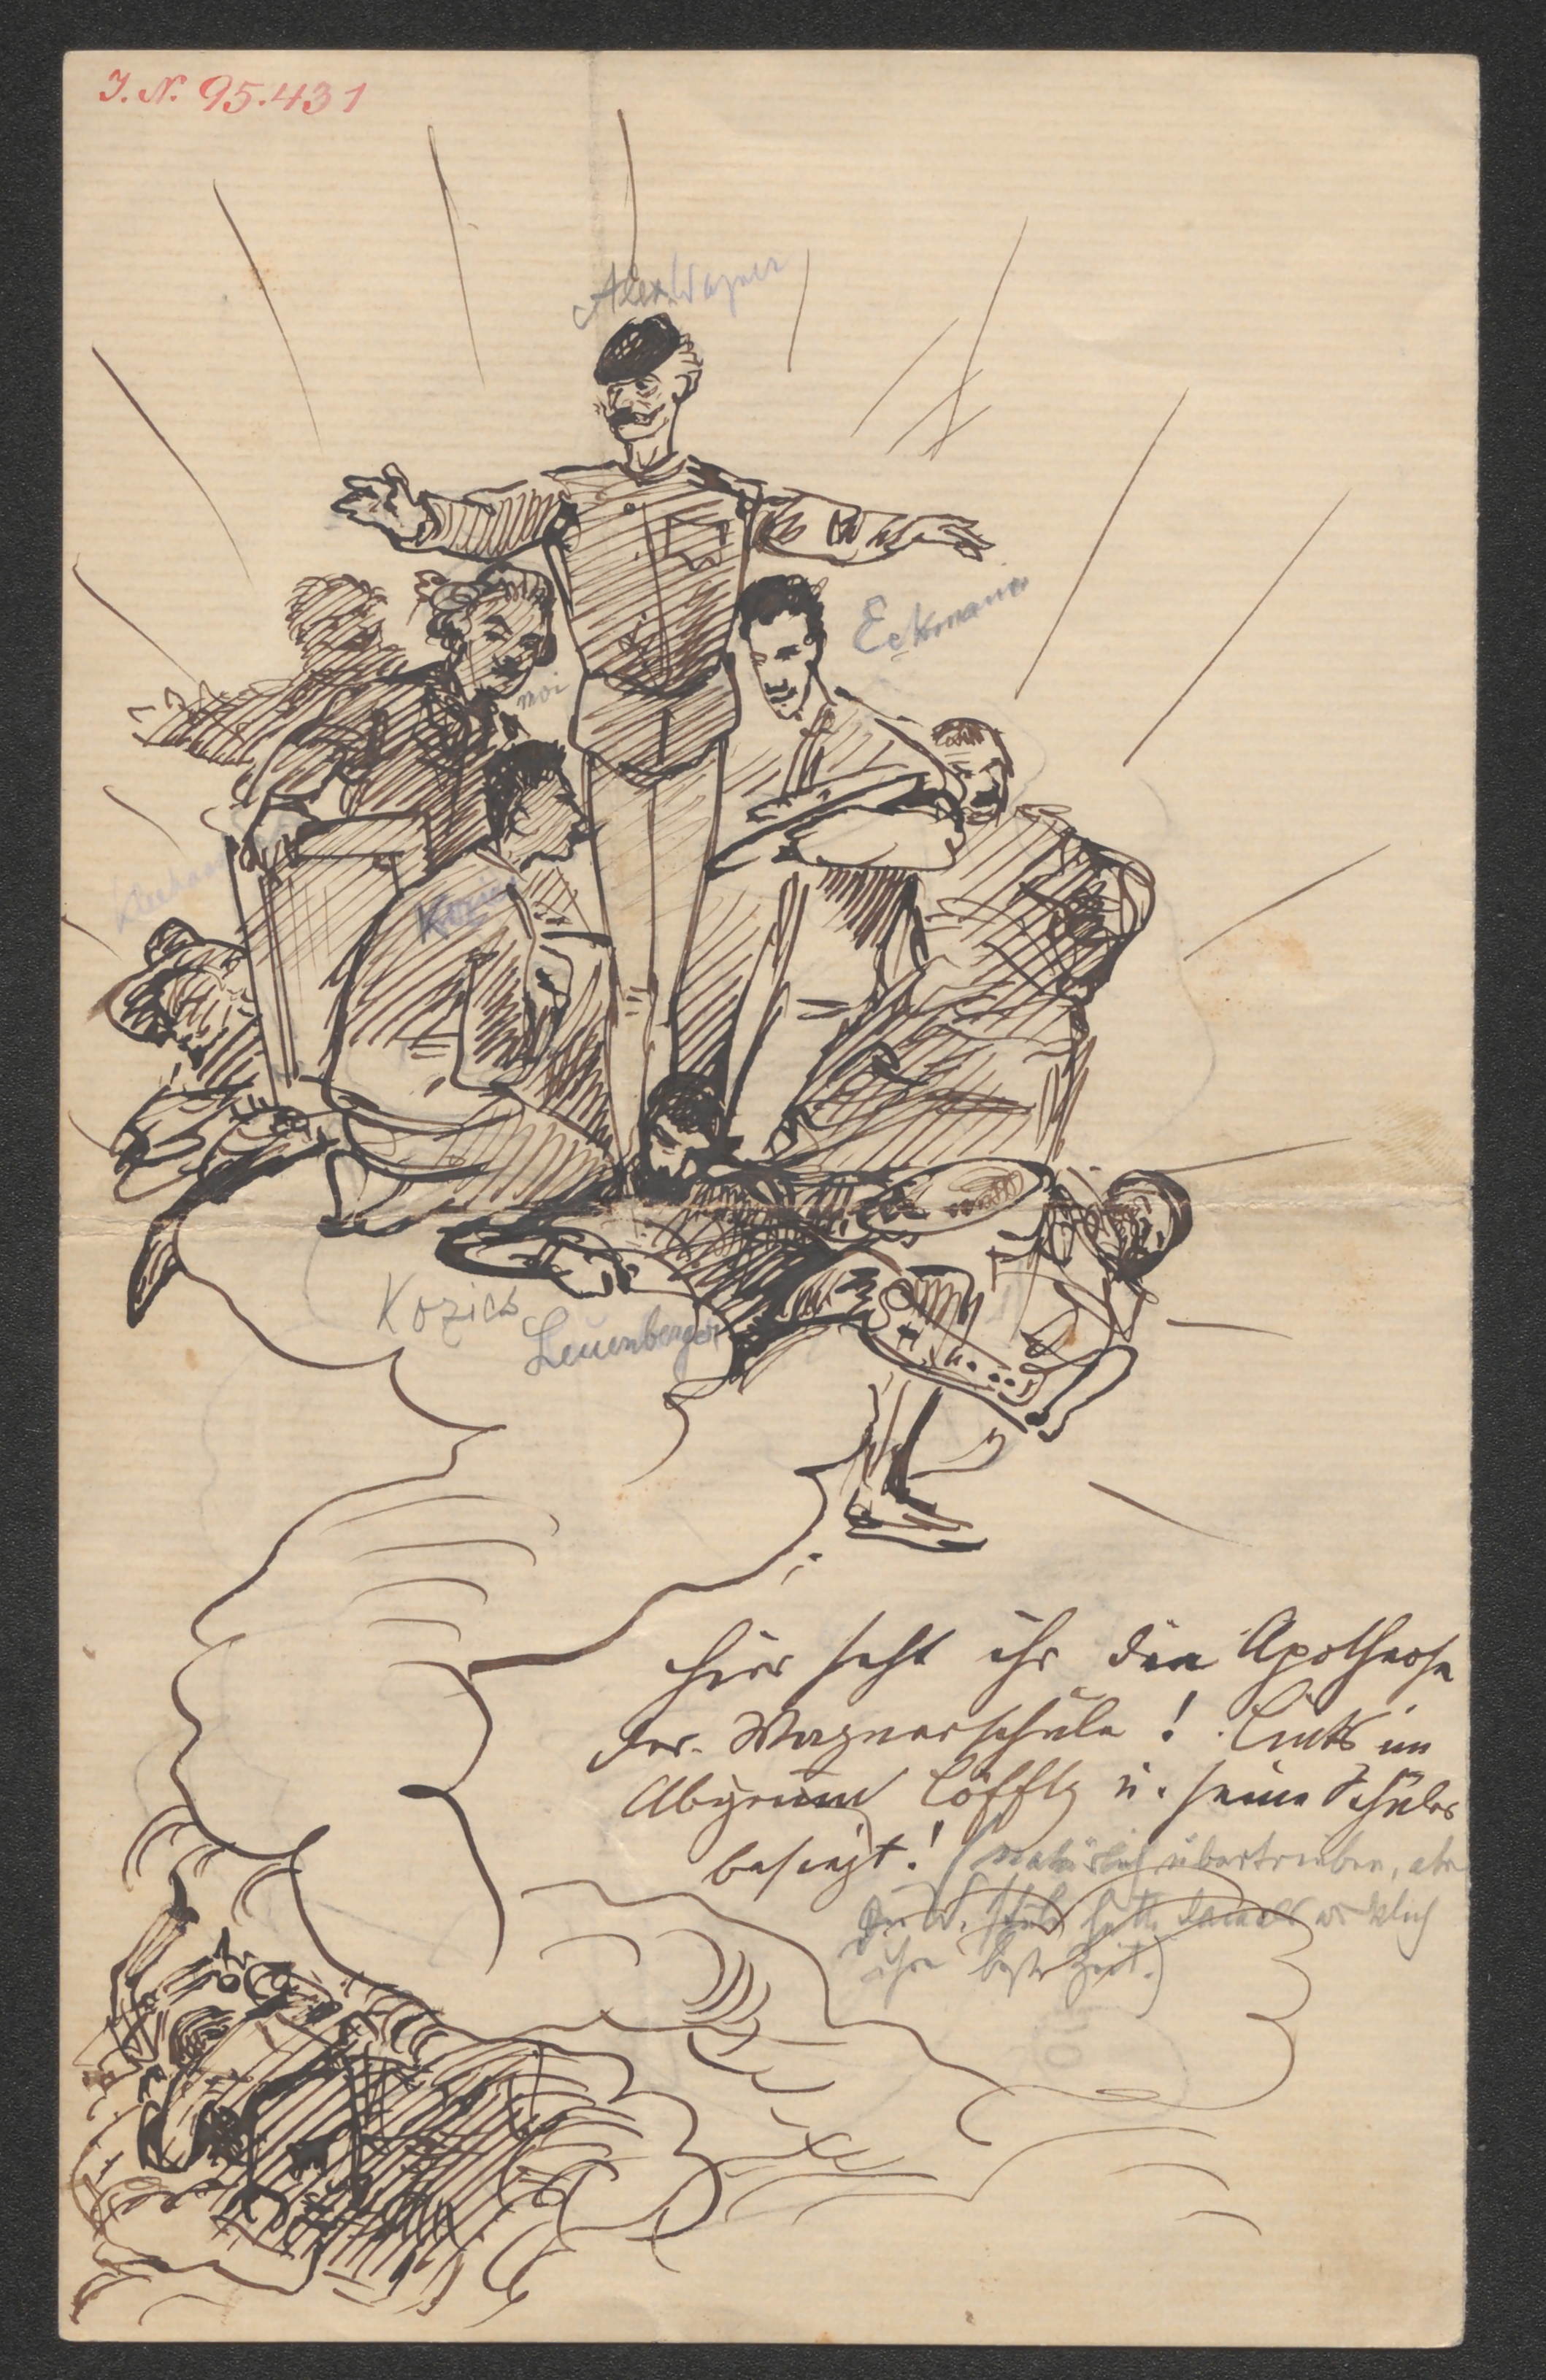 J. N. 95.431
Alex. Wagner
Eckmann
moi
Kozics
Kozics
Leuenberger
Hier seht ihr die Apotheose
der Wagnerschule! Links im
Abgrund Löfftz u. seine Schüler
besiegt! (natürlich übertrieben, aber
die W. Schule hatte damals wirklich
ihre beste Zeit.)